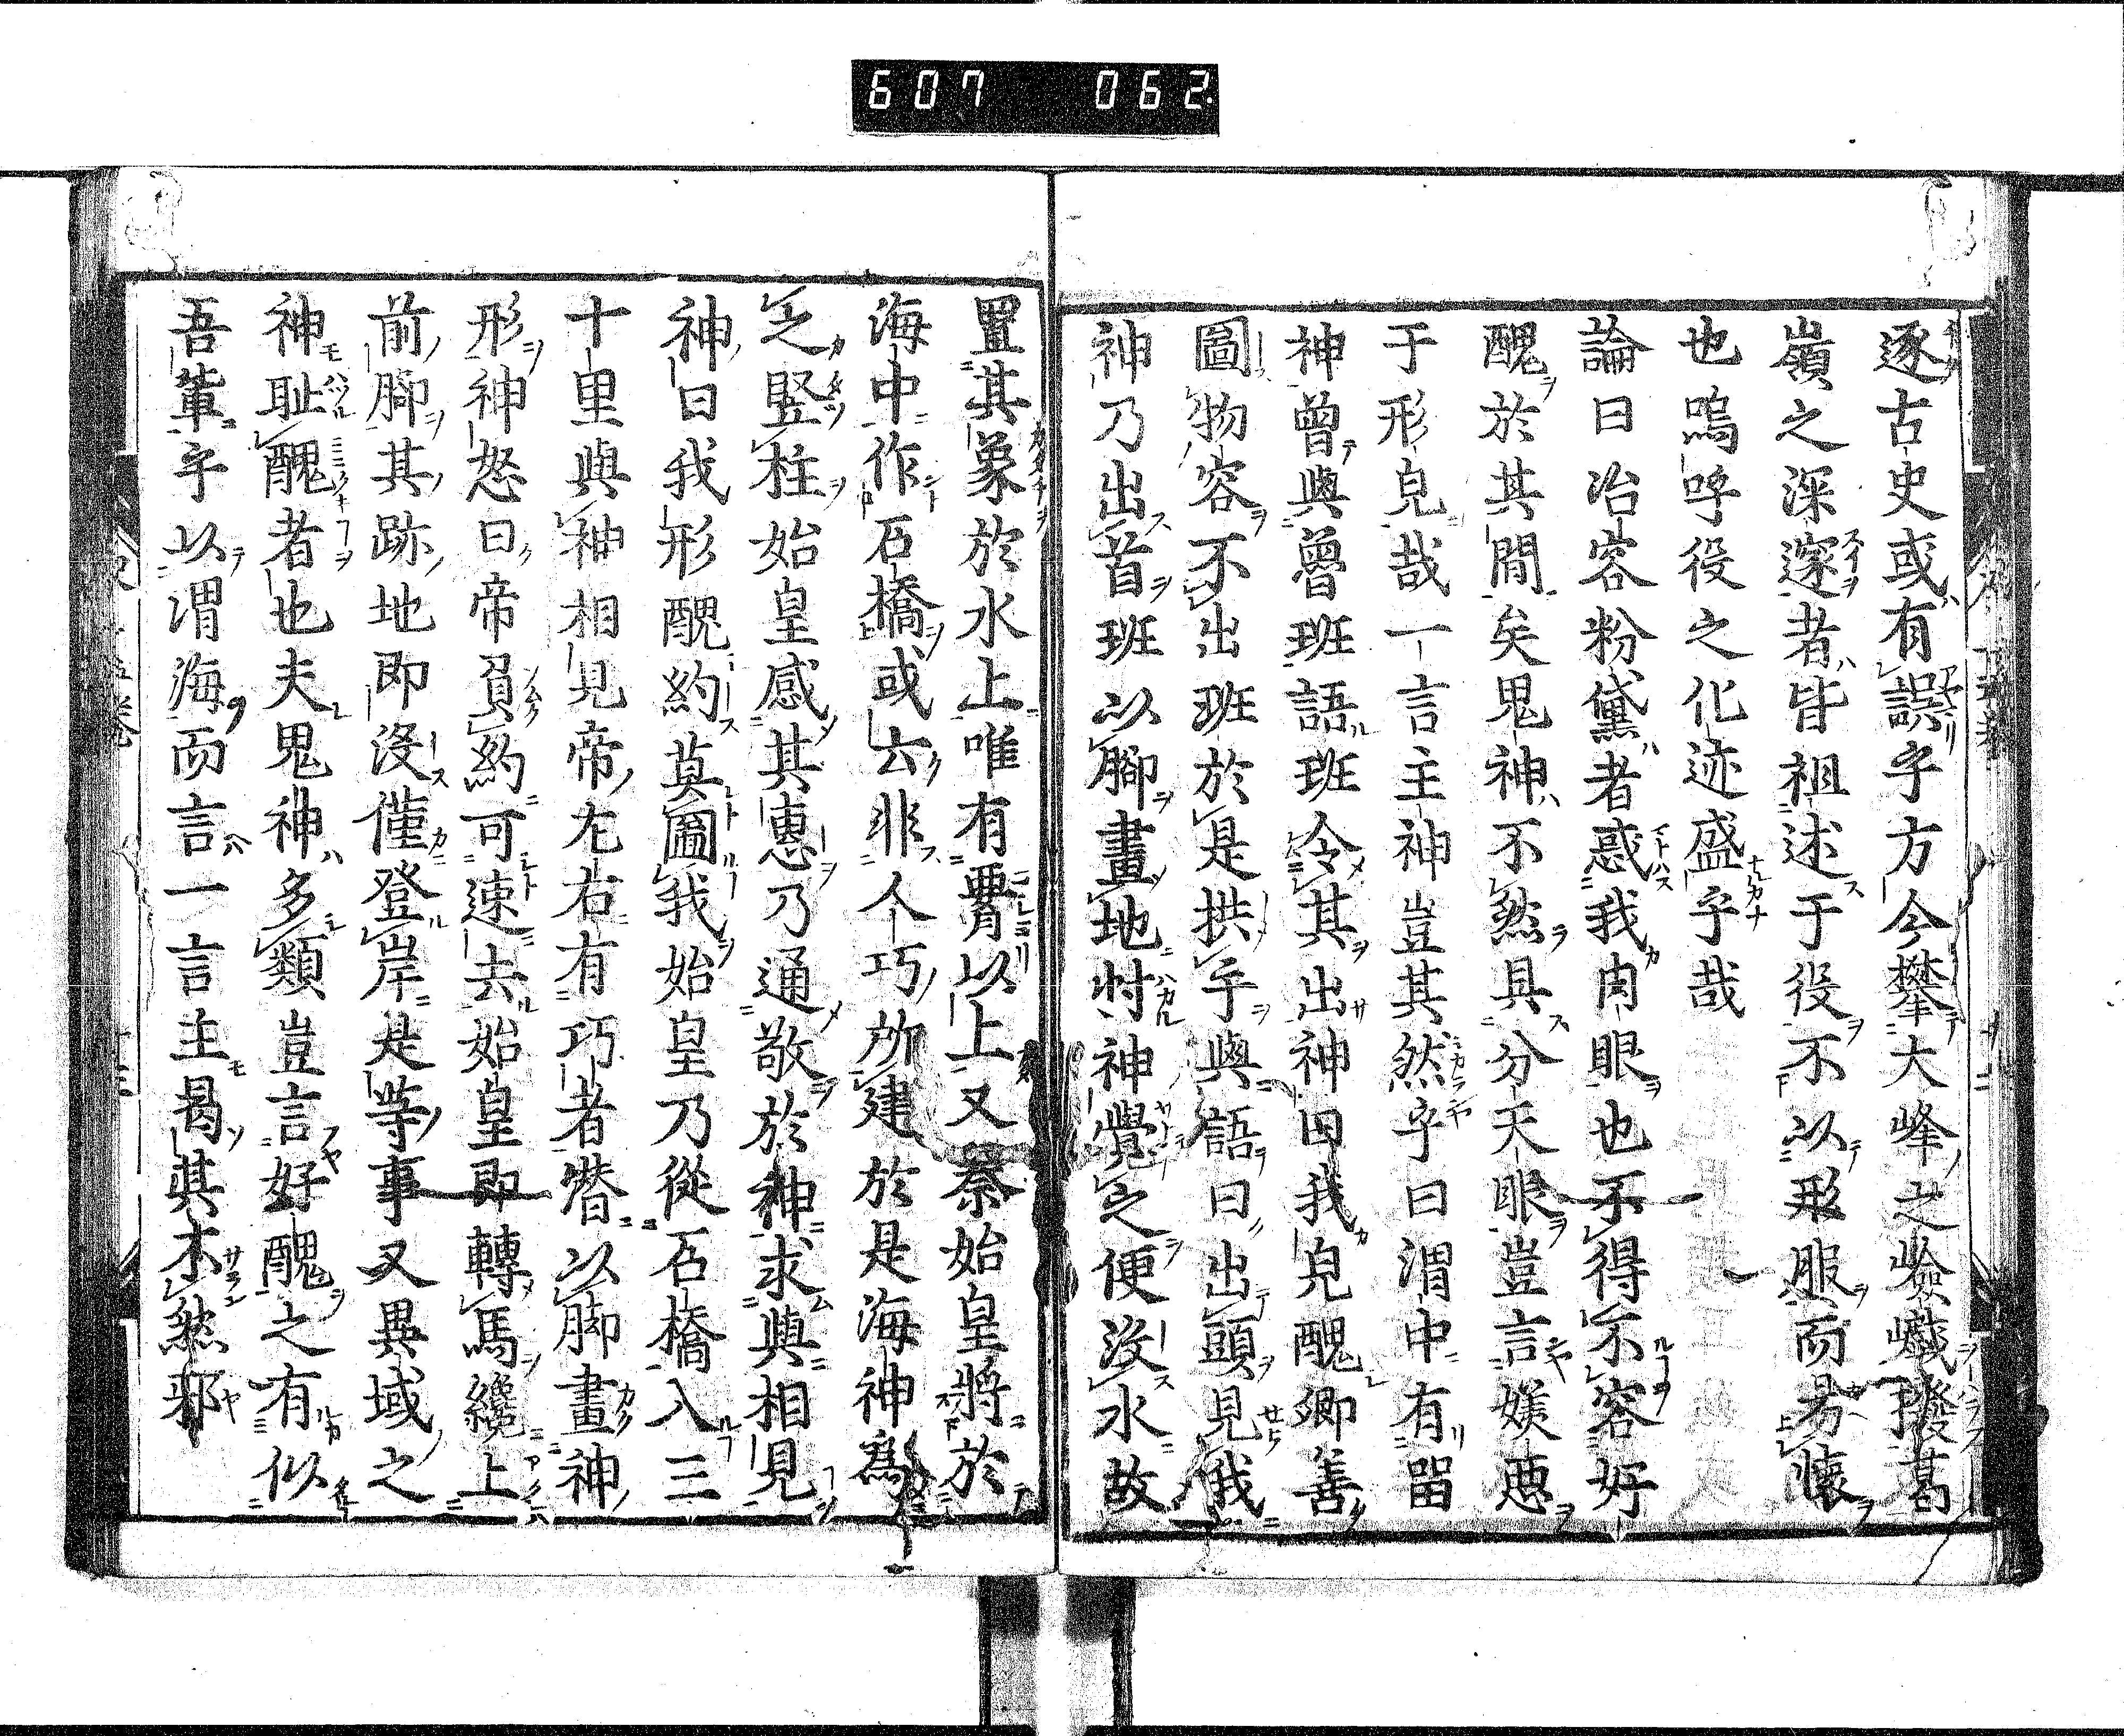 607 062
逐古史或有誤乎方今攀大峰之嶮巇撥葛
嶺之深邃者皆祖述于役不以形服而易懷
也嗚呼役之化迹盛乎哉
論曰冶容粉黛者惑我肉眼也不得不容好
醜於其間矣鬼神不然具分天眼豈言媄惡
于形皃哉一言主神豈其然乎曰渭中有留
神曾與魯班語班令其出神曰我皃醜卿善
圖物容不出班於是拱手與語曰出頭見我
神乃出首班以腳畫地忖神覺之便沒水故
置其象於水上唯有䯊以上又秦始皇將於
海中作石橋或云非人巧所建於是海神爲
之竪柱始皇感其惠乃通敬於神求與相見
神曰我形醜約莫圖我始皇乃從石橋入三
十里與神相見帝左右有巧者潛以脚畫神
形神怒曰帝負約可速去始皇即轉馬纔上
前腳其跡地即沒僅登岸是等事又異域之
神耻醜者也夫鬼神多類豈言好醜之有似
吾輩乎以渭海而言一言主曷其不然邪